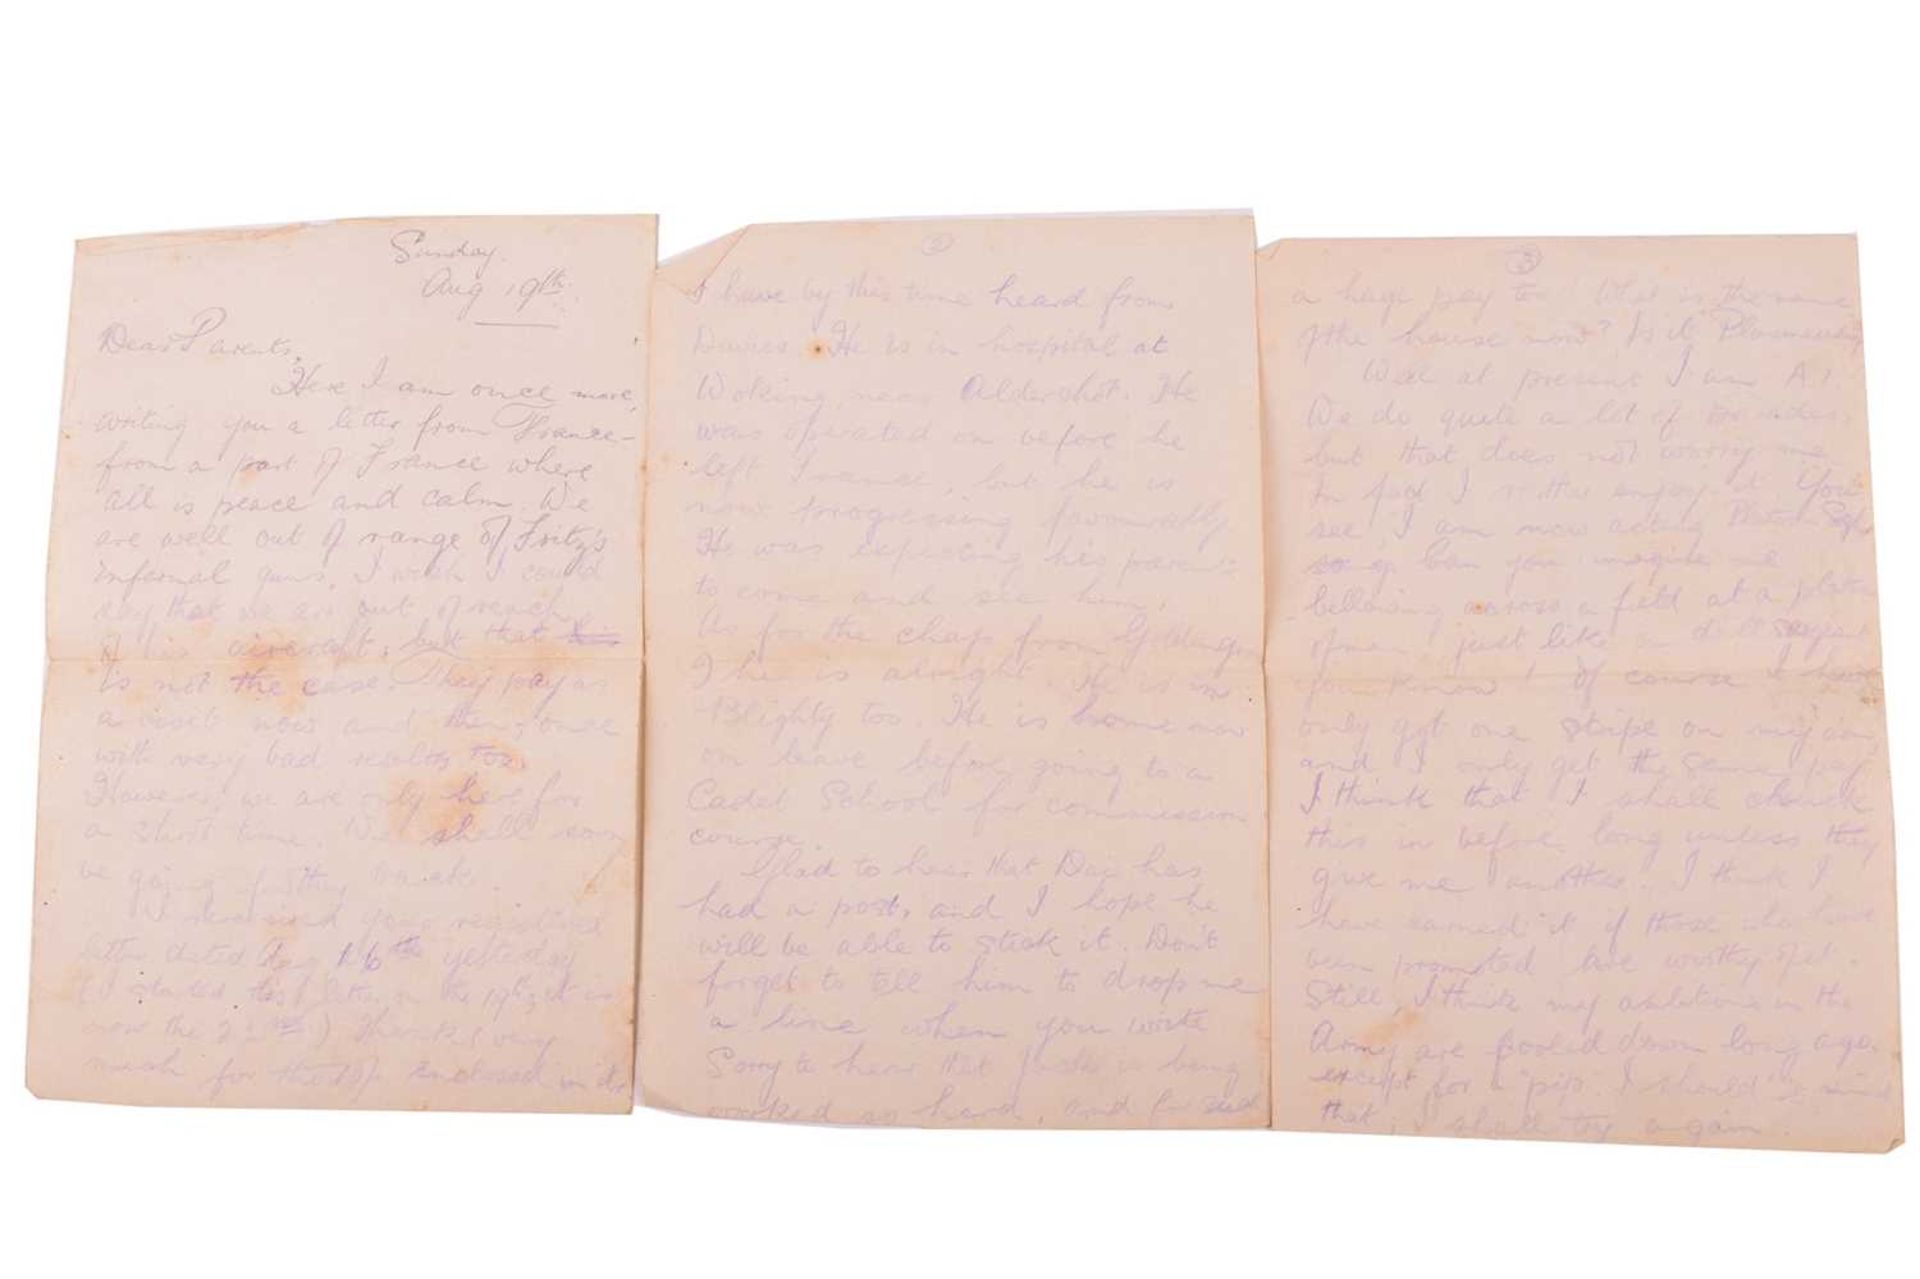 Sunday.
Aug 19th.
Dear Parents,
Here I am once more,
writing you a letter from France-
from a part of France where
all is peace and calm. We
are well out of range of Fritz's
infernal guns. I wish I could
say that we are out of reach
of his aircraft, but that his
is not the case. They pay us
a visit now and then, once
with very bad results too.
However, we are only here for
a short time. We shall soon
be going further back.
I received your registered
letter dated Aug 16th yesterday
(I started this letter on the 19th, it is
now the 22nd) Thanks very
much for the 10/- enclosed in it
2
I have by this time heard from
Davies. He is in hospital at
Woking, near Aldershot. He
was operated on before he
left France, but he is
now progressing favourably
He was expecting his parents
to come and see him.
As for the chap from
he is alright. He is in
"Blighty too. He is home now
on leave before going to a
Cadet School for commission
course.
Glad to hear that Dai has
had a post, and I hope he
will be able to stick it. Don't
forget to tell him to drop me
a line when you write
Sorry to hear that Jack is being
worked so hard, and for such
3
a huge pay too! What is the name
of the house now? Is it
Well at present I am A1.
We do quite a lot of
but that does not worry me
In fact I rather enjoy it. You
see, I am now acting Platoon Sgt
so Can you imagine me
bellowing across a field at a platoon
of men just like a drill sergeant
you know! Of course I have
only got one stripe on my arm,
and I only get the same pay
I think that I shall chuck
this in before long unless they
give me another. I think I
have earned it if those who have
been promoted are worthy of it.
Still, I think my ambitions in the
Army are fooled down long ago.
except for a "pip". I should mind
that; I shall try again.